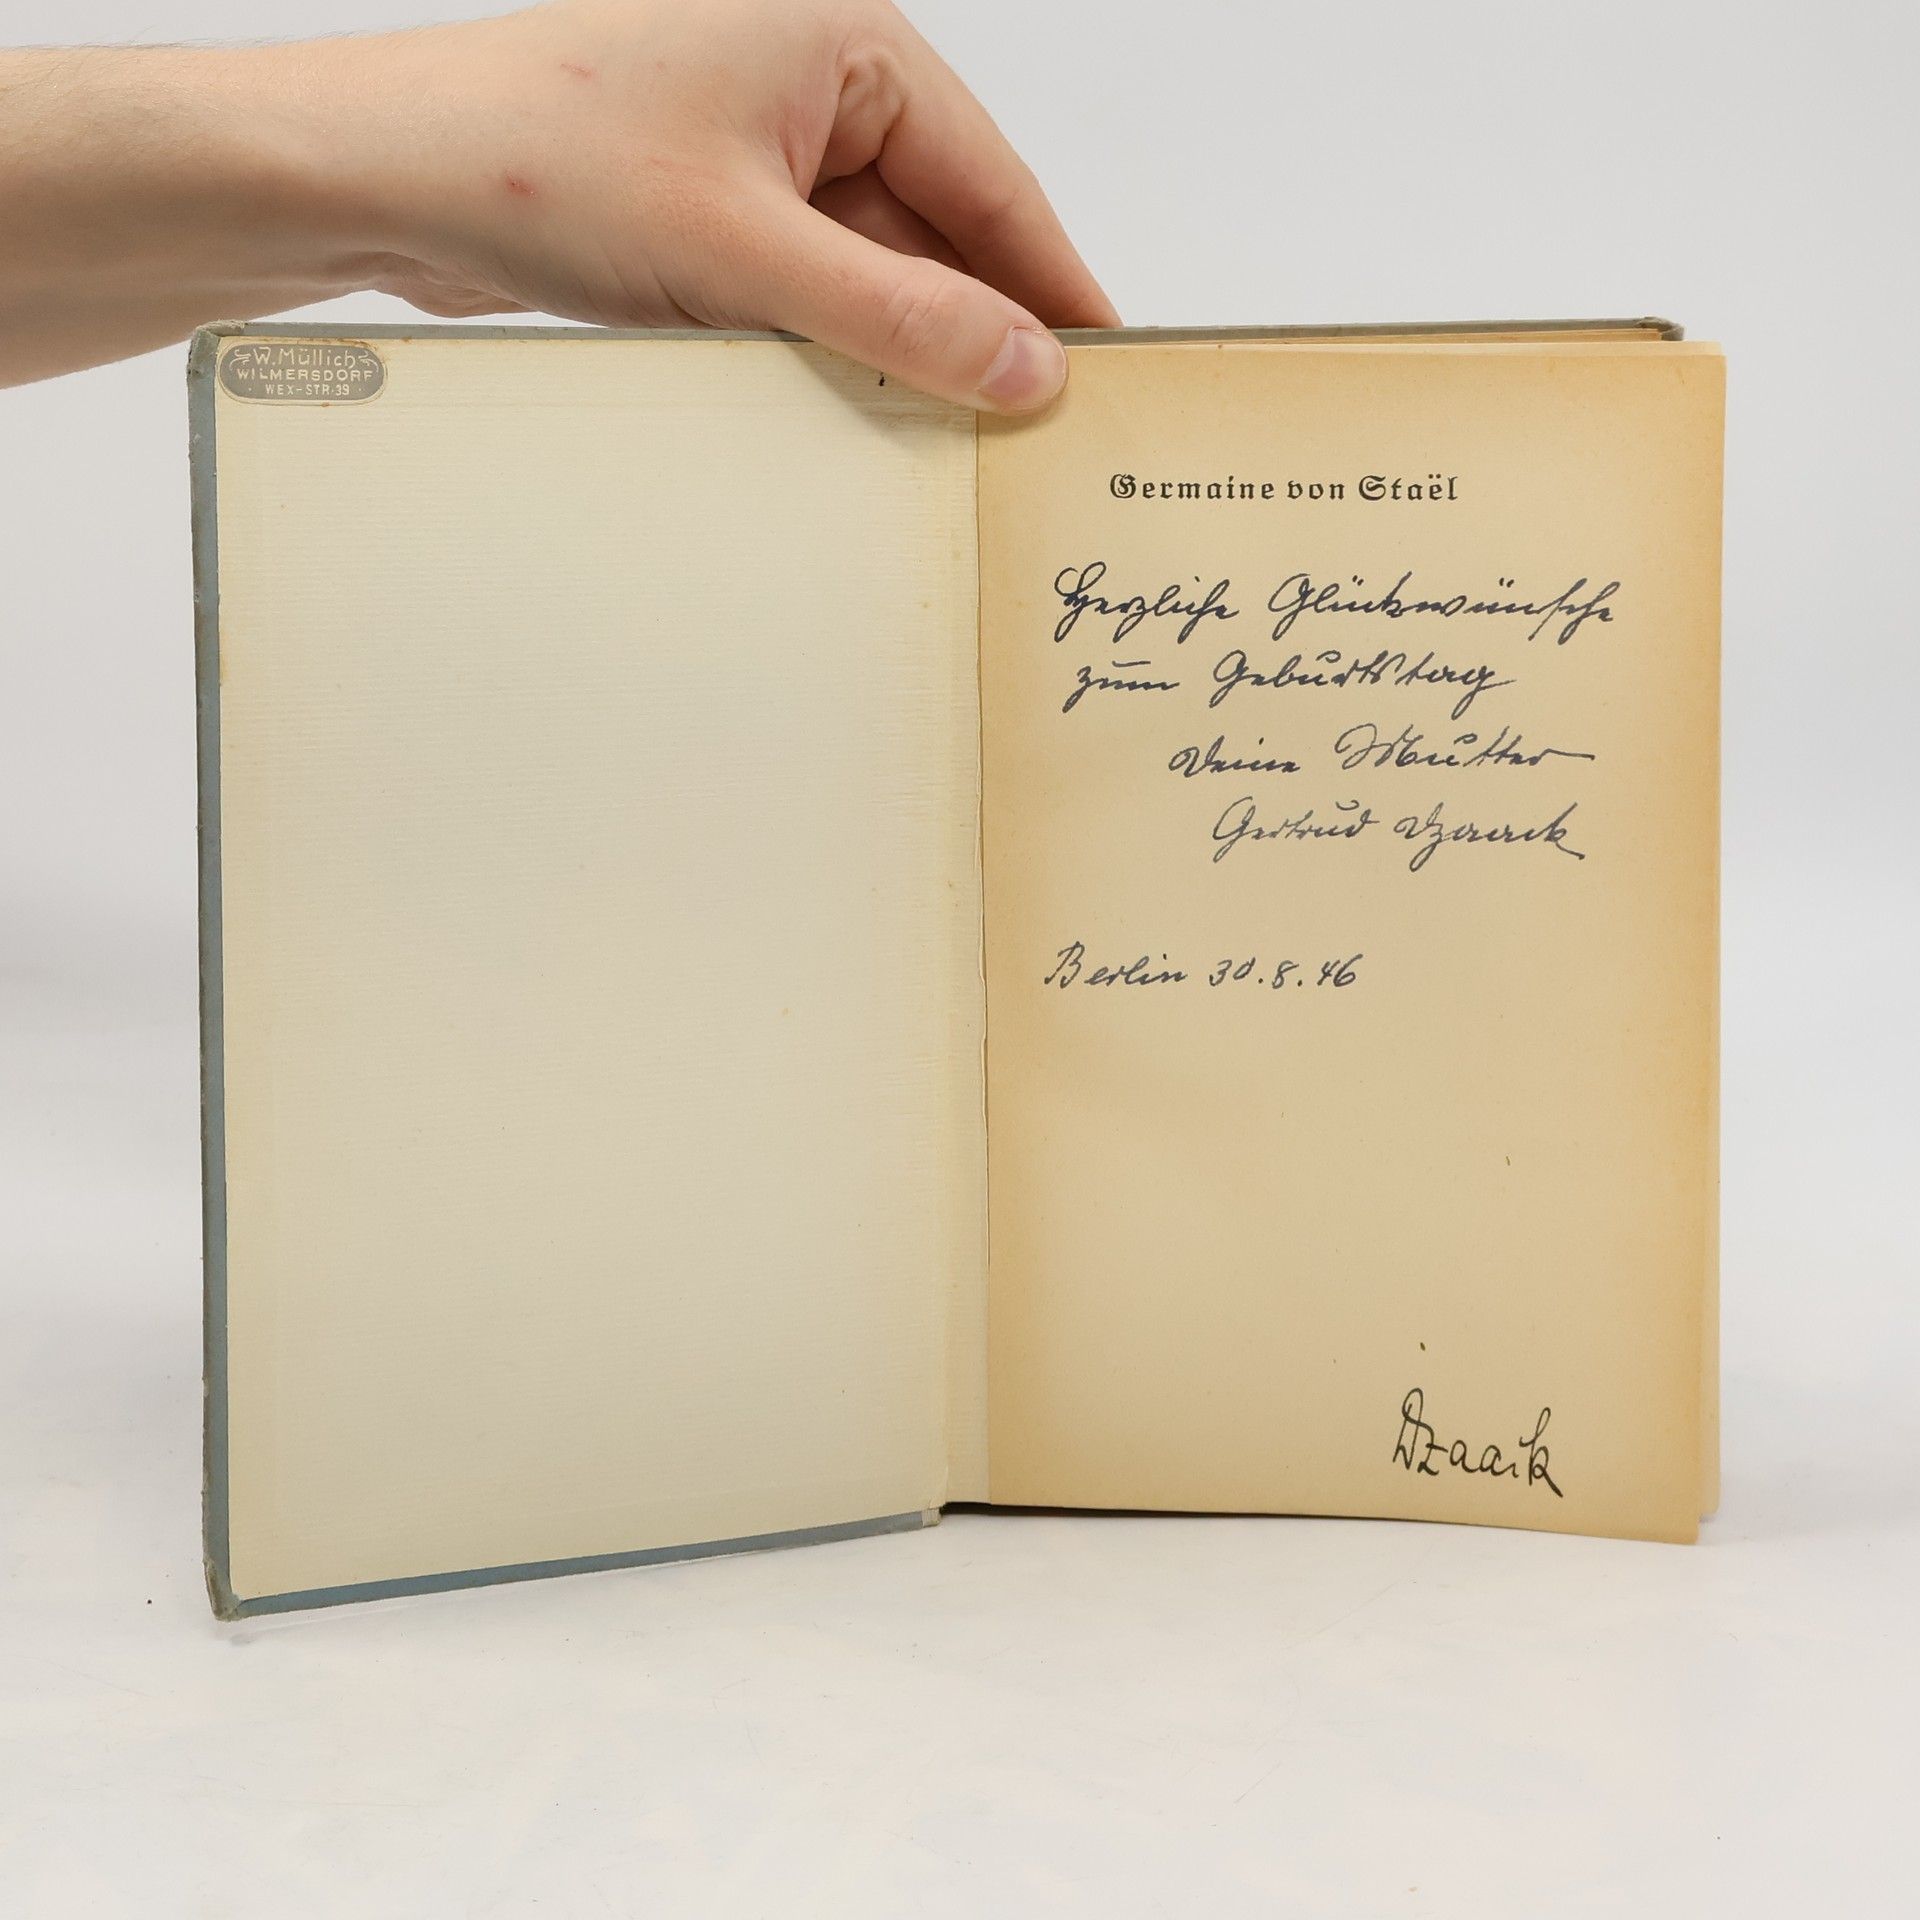 W. Müllich
WILMERSDORF
· WEX-STR·39 ·
Germaine von Staël
Herzliche Glückwünsche
zum Geburtstag
Deine Mutter
Gertrud Dzaack
Berlin 30.8.46
Dzaack